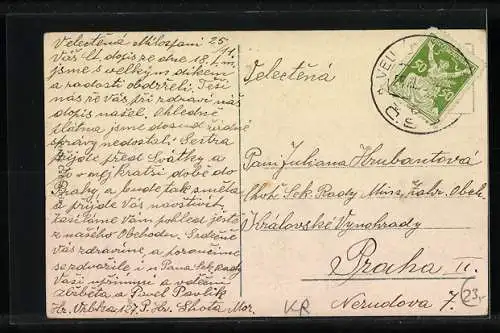 Velectěná Milospaní 25/11.
Váš lt. dopis ze dne 18. t. m.
jsme s velkým díkem
a radostí obdrželi. Těší
nás že Vás při zdraví náš
dopis našel. Ohledně
plátna jsme dosud žádné
správy nedostali. Sestra
přijde před Svátky a
to v nej kratší době do
Prahy, a bude tak směla
a přijde Vás navštívit,
zasíláme Vám pohled jenž
z našeho Obchodu. Srdečně
Vás zdravíme, a poroučíme
se zdvořile i u Pana Sek. rady
Vaši upřímní a oddaní
Alžběta a Pavel Pavlík
Hr. Vrbka 127. P. Hr. Lhota Mor.
Velectěná
Paní Juliana Hrubantová
Choť Sek. Rady Min. Zahr. Obch.
Královské Vynohrady
Praha II.
Nerudova 7.
50 50
VELK
Č.S.
KR
23,-